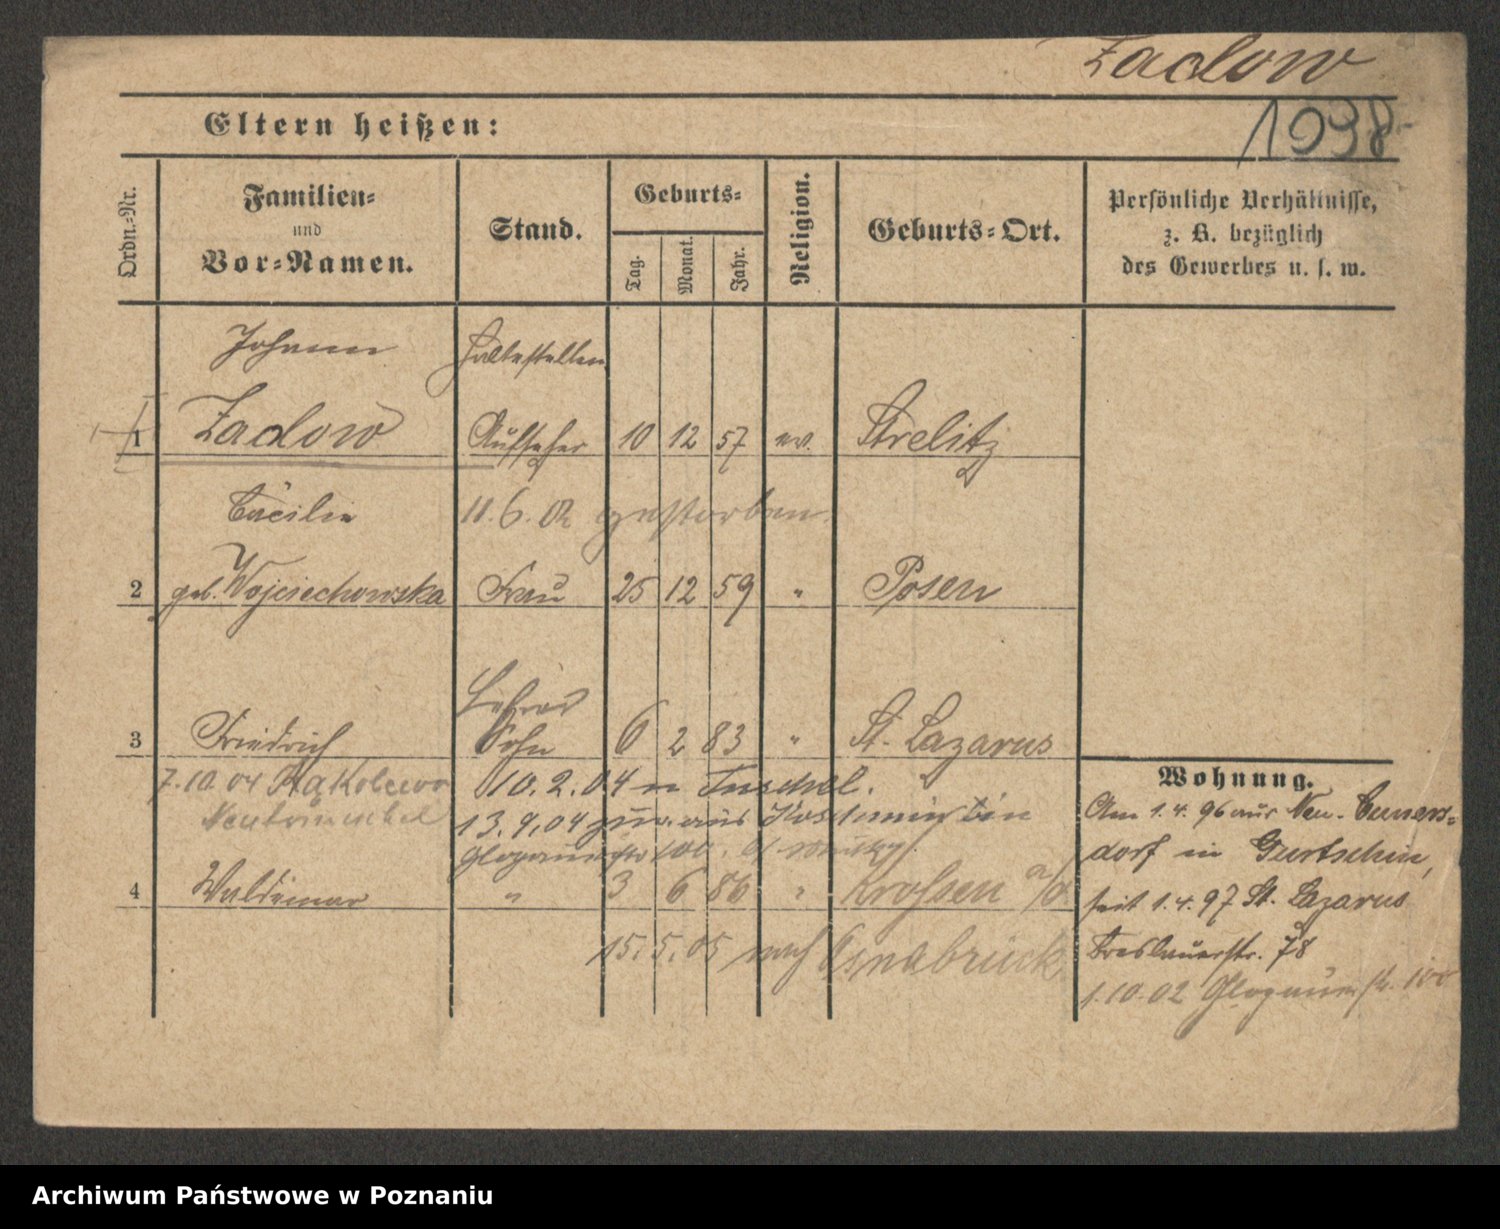 Zadow
1998
Eltern heißen:
Ordn.-Nr.
Familien-
und
Vor-Namen.
Stand.
Geburts-
Tag.
Monat.
Jahr.
Religion.
Geburts-Ort.
Persönliche Verhältnisse,
z. B. bezüglich
des Gewerbes u. s. w.
Johann Haltestellen
1 Zadow Aufseher 10 12 57 ev. Strelitz
Cäcilie 11.6.02 gestorben.
2 geb. Wojciechowska Frau 25 12 59 " Posen
3 Friedrich Sohn 6 2 83 " St. Lazarus
7.10 04 Rakolewo 10.2.04 n Tuschel.
13.9.04 zur. aus
Glogauerstr 100.
4 Waldemar " 3 6 86 " Krossen a/O
15.5.05 nach Osnabrück
Wohnung.
Am 1.4.96 aus Neu-Cuners-
dorf in Gurtschin,
seit 1.4.97 St. Lazarus
Breslauerstr. 78
1.10.02 Glogauerstr. 100
Archiwum Państwowe w Poznaniu